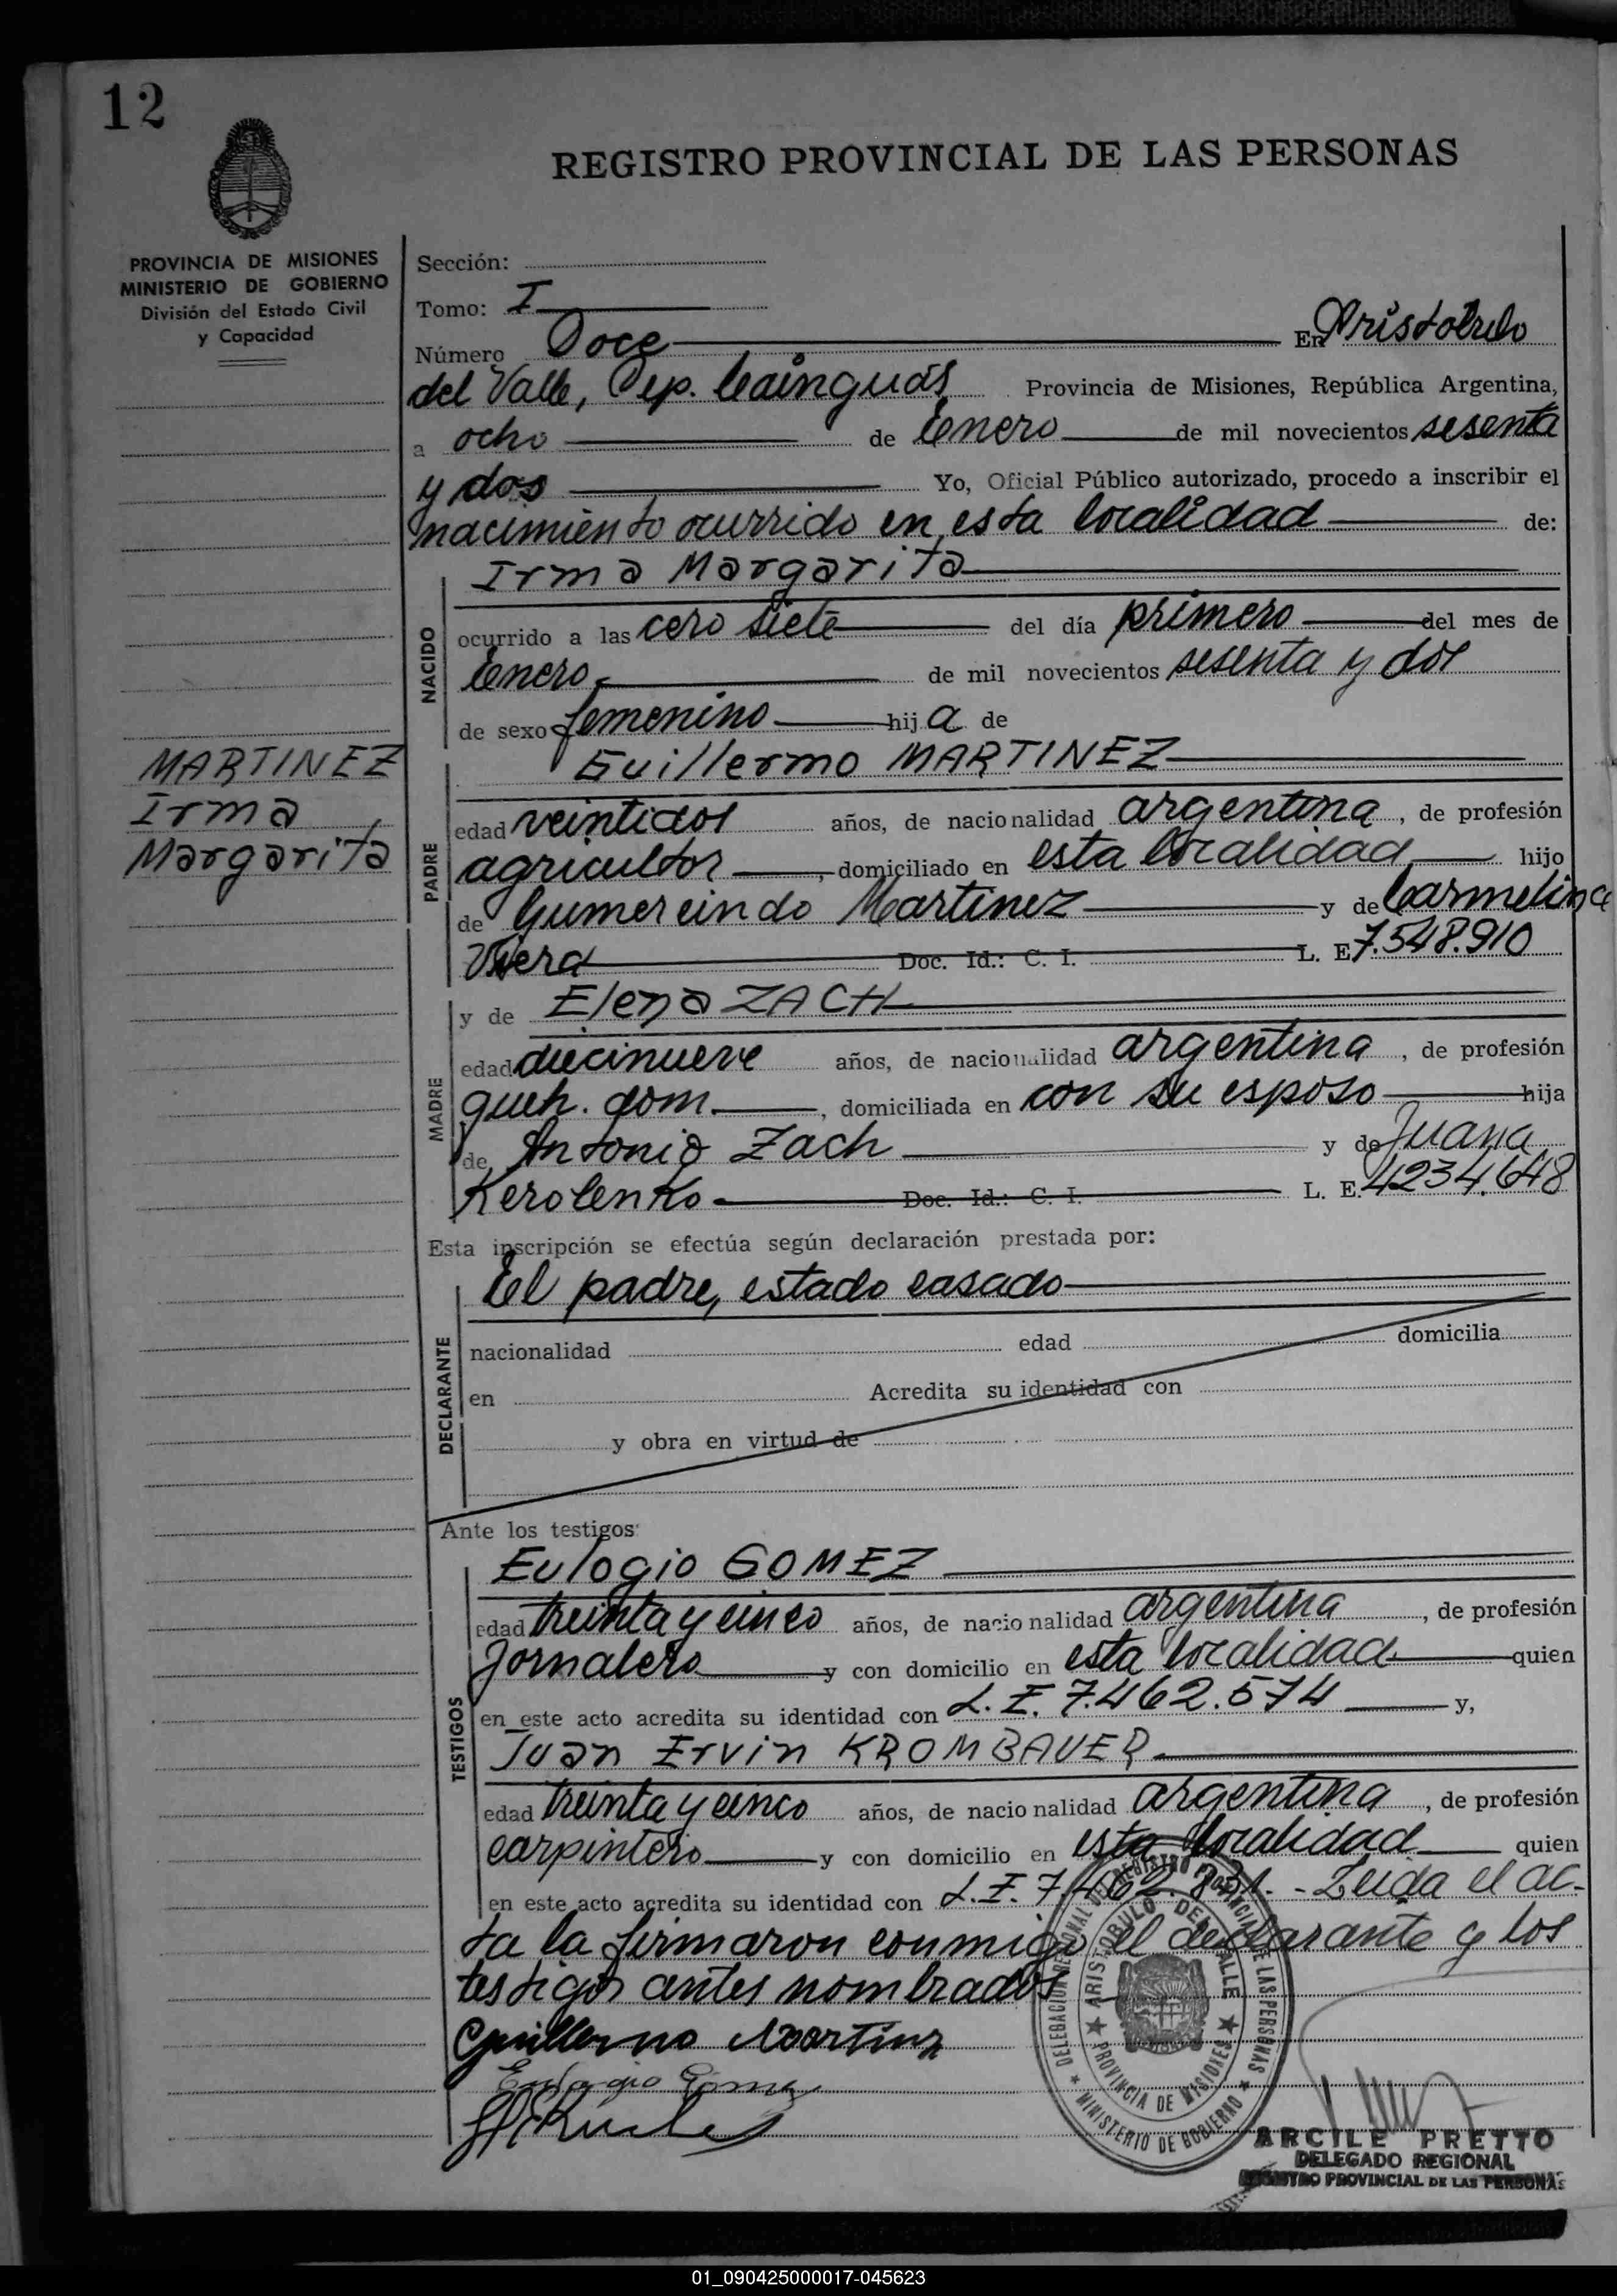 12
REGISTRO PROVINCIAL DE LAS PERSONAS
PROVINCIA DE MISIONES
MINISTERIO DE GOBIERNO
División del Estado Civil
y Capacidad
Sección:
Tomo: I
Número Doce En Aristóbulo
del Valle, Dep. Cainguás Provincia de Misiones, República Argentina,
a ocho de Enero de mil novecientos sesenta
y dos Yo, Oficial Público autorizado, procedo a inscribir el
nacimiento ocurrido en esta localidad de:
NACIDO
Irma Margarita
ocurrido a las cero siete del día primero del mes de
Enero de mil novecientos sesenta y dos
de sexo femenino hija de
MARTINEZ
Irma
Margarita
PADRE
Guillermo MARTINEZ
edad veintidos años, de nacionalidad argentina, de profesión
agricultor, domiciliado en esta localidad hijo
de Gumercindo Martinez y de Carmelina
Viera Doc. Id.: C. I. L. E 7.548.910
MADRE
y de Elena ZACH
edad diecinueve años, de nacionalidad argentina, de profesión
queh. dom., domiciliada en con su esposo hija
de Antonio Zach y de Juana
Kerolenko Doc. Id.: C. I. L. E. 4234.648
Esta inscripción se efectúa según declaración prestada por:
DECLARANTE
El padre, estado casado
nacionalidad edad domicilia
en Acredita su identidad con
y obra en virtud de
Ante los testigos:
TESTIGOS
Eulogio GOMEZ
edad treinta y cinco años, de nacionalidad argentina, de profesión
Jornalero y con domicilio en esta localidad quien
en este acto acredita su identidad con L.E. 7.462.574 y,
Juan Ervin KROMBAUER
edad treinta y cinco años, de nacionalidad argentina, de profesión
carpintero y con domicilio en esta localidad quien
en este acto acredita su identidad con L.E. - Leida el ac-
ta la firmaron conmigo el declarante y los
testigos antes nombrados
Guillermo Martinz
Eulogio Gomez
DELEGACION REGIONAL DEL REGISTRO PROVINCIAL DE LAS PERSONAS
ARISTOBULO DEL VALLE
PROVINCIA DE MISIONES
MINISTERIO DE GOBIERNO
ARCILE PRETTO
DELEGADO REGIONAL
REGISTRO PROVINCIAL DE LAS PERSONAS
01_090425000017-045623